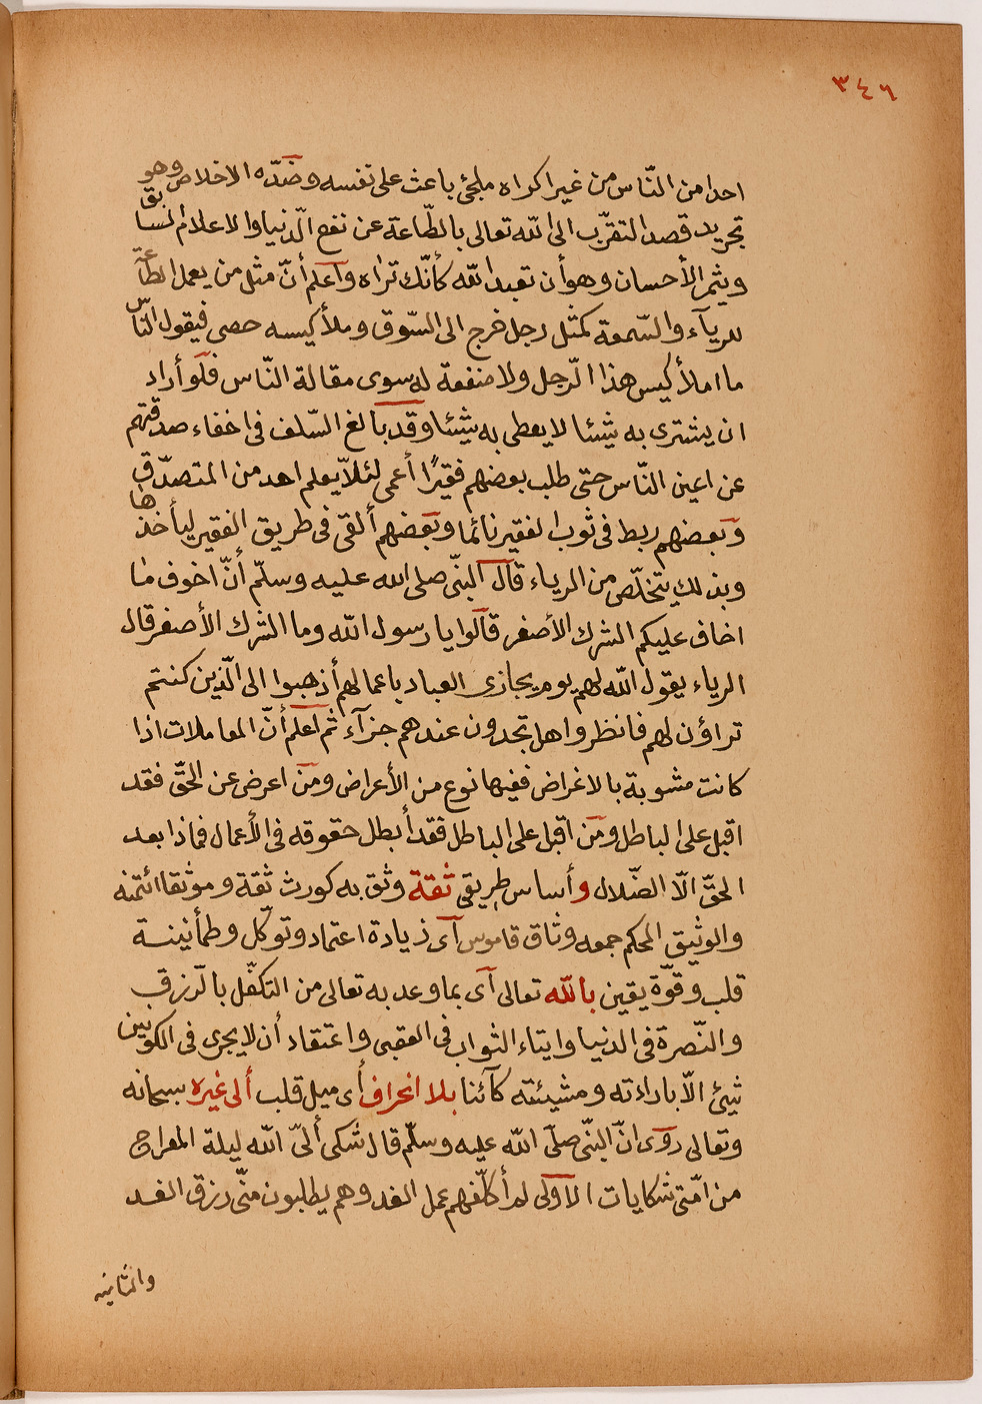 ٣٤٦
احدا من النّاس من غير اكراه ملجئ باعث على نفسه وضدّه الاخلاص وهو
تجريد قصد التقرّب الى الله تعالى بالطّاعة عن نفع الدّنيا والاعلام السابق
ويثمر الأحسان وهو أن تعبد الله كأنّك تراه وآعلم أنّ مثل من يعمل الطاعة
للريآء والسّمعة كمثل رجل خرج الى السّوق وملأ كيسه حصى فيقول النّاس
ما املأ كيس هذا الرّجل ولا منفعة له سوى مقالة النّاس فلو أراد
ان يشترى به شيئا لا يعطى به شيئا وقد بالغ السّلف فى اخفاء صدقتهم
عن اعين النّاس حتى طلب بعضهم فقيرًا أعمى لئلاّ يعلم احد من المتصدّق
وبعضهم ربط فى ثوب الفقير نائما وبعضهم ألقى فى طريق الفقير ليأخذها
وبذلك يتخلّص من الرياء قال النبّى صلى الله عليه وسلّم أنّ اخوف ما
اخاف عليكم الشرك الأصغر قالوا يا رسول الله وما الشرك الأصغر قال
الرياء يقول الله لهم يوم يجازى العباد باعمالهم أذهبوا الى الّذين كنتم
تراؤن لهم فانظروا هل تجدون عندهم جزآء ثم اعلم أنّ المعاملات اذا
كانت مشوبة بالاغراض ففيها نوع من الأعراض ومن اعرض عن الحقّ فقد
اقبل على الباطل ومن اقبل على الباطل فقد أبطل حقوقه فى الأعمال فماذا بعد
الحقّ الاّ الضّلال وأساس طريقى ثقة وثق به كورث ثقة وموثقا ائتمنه
والوثيق المحكم جمعه وثاق قاموس آى زيادة اعتماد وتوكّل وطمأنينة
قلب وقوّة يقين بالله تعالى آى بما وعد به تعالى من التكفّل بالرّزق
والنّصرة فى الدنيا وايتاء الثواب فى العقبى واعتقاد أن لا يجرى فى الكونين
شيئ الاّ باراداته ومشيئته كآئنا بلا انحراف أى ميل قلب ألى غيره سبحانه
وتعالى روى انّ النبّى صلّى الله عليه وسلّم قال شكى ألىّ الله ليلة المعراج
من امّتى شكايات الاولى لم أكلّفهم عمل الغد وهم يطلبون منّى رزق الغد
والثانيه